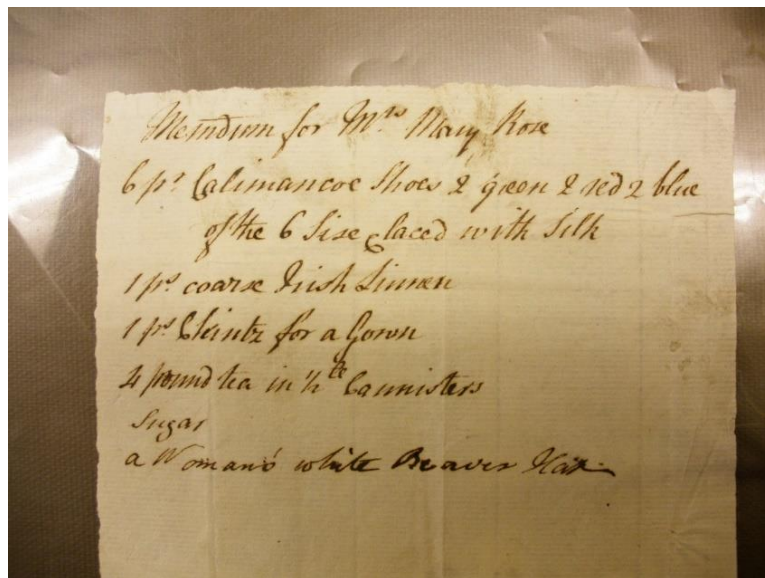 Memdum for Mrs Mary Rose
6 pr Calimancoe Shoes 2 green 2 red 2 blue
of the 6 Size laced with Silk
1 ps coarse Irish Linnen
1 ps Chintz for a Gown
4 pound tea in Cannisters
Sugar
a Woman's white Beaver Hat